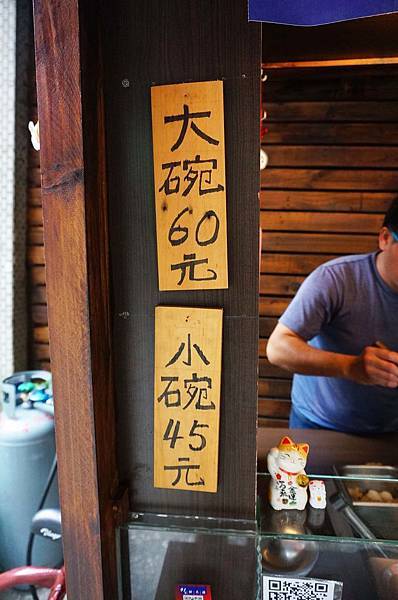 大
碗
60
元
小
碗
45
元